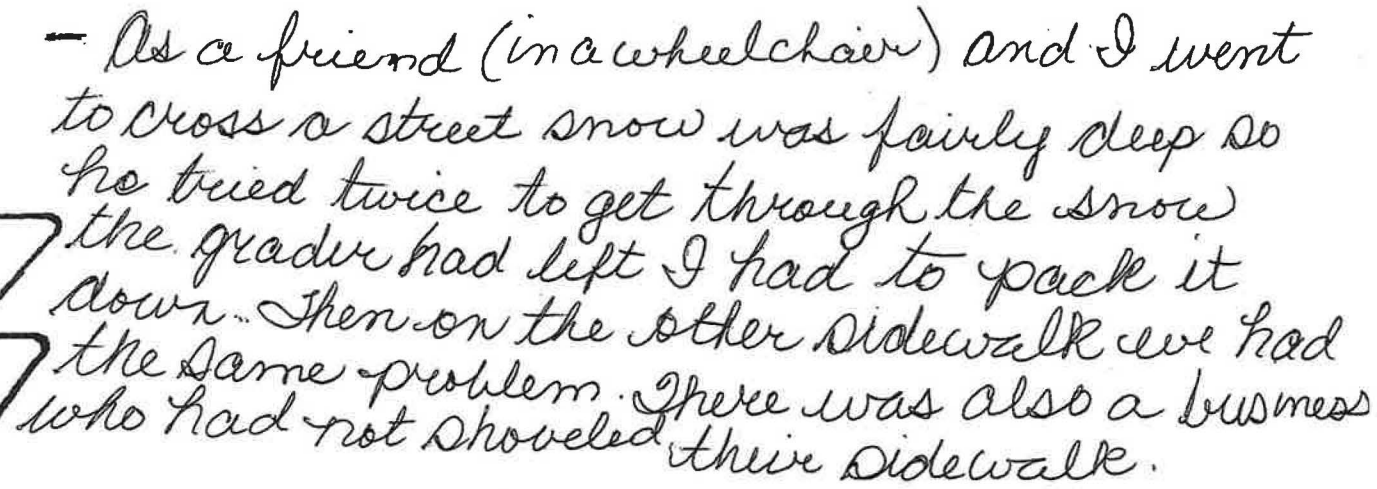 - As a friend (in a wheelchair) and I went
to cross a street snow was fairly deep so
he tried twice to get through the snow
the grader had left I had to pack it
down. Then on the other sidewalk we had
the same problem. There was also a business
who had not shoveled their sidewalk.